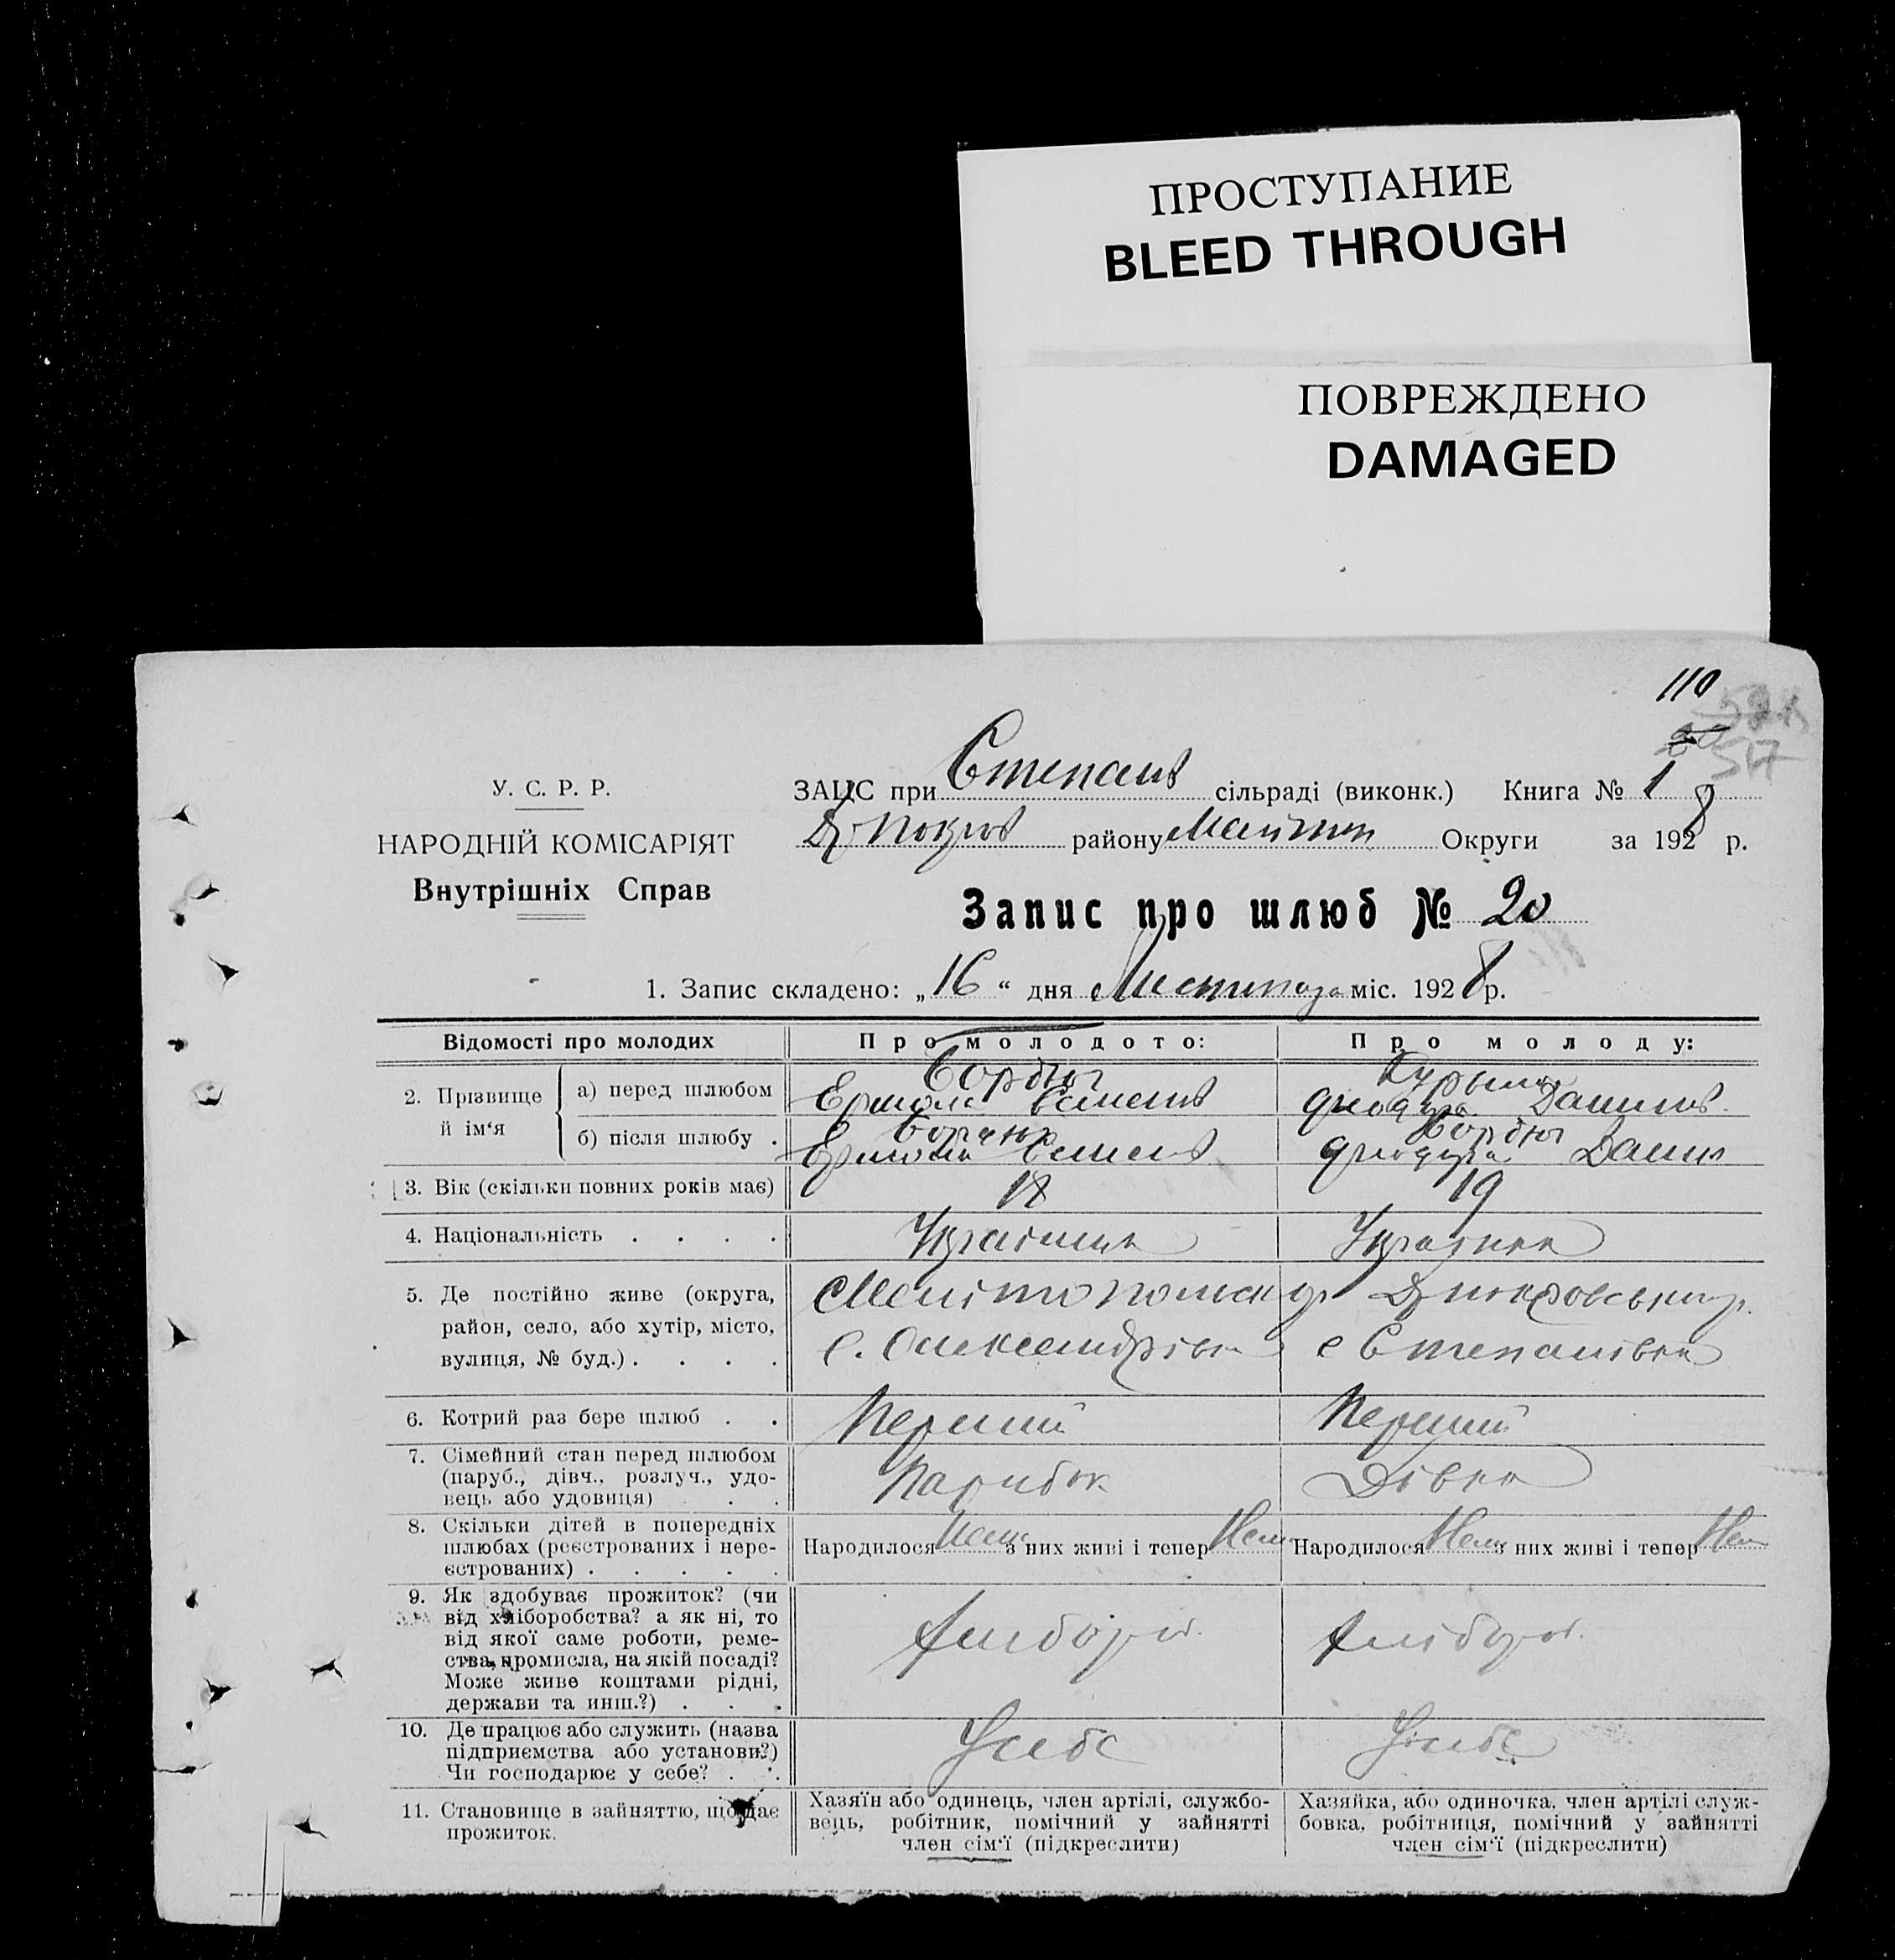 ПРОСТУПАНИЕ
BLEED THROUGH
ПОВРЕЖДЕНО
DAMAGED
110
517
У. С. Р. Р.
НАРОДНІЙ КОМІСАРІЯТ
Внутрішніх Справ
ЗАЦС при Степанів сільраді (виконк.) Книга № 1
району Округи за 1928 р.
Запис про шлюб № 20
1. Запис складено: „16“ дня Листипада міс. 1928 р.
Відомості про молодих
Про молодого:
Про молоду:
2. Прізвище й ім‘я
а) перед шлюбом
Данилів
б) після шлюбу .
Данил
3. Вік (скільки повних років має)
18
19
4. Національність . . . .
Українець
Українка
5. Де постійно живе (округа,
район, село, або хутір, місто,
вулиця, № буд.) . . . .
с. Олександрівк
с Степанівка
6. Котрий раз бере шлюб . .
Перший
Перший
7. Сімейний стан перед шлюбом
(паруб., дівч., розлуч., удо-
вець або удовиця) . .
Парубок
Дівка
8. Скільки дітей в попередніх
шлюбах (реєстрованих і нере-
єстрованих) . . . . .
Народилося Нема з них живі і тепер Нема
Народилося Нема з них живі і тепер Нема
9. Як здобуває прожиток? (чи
від хліборобства? а як ні, то
від якої саме роботи, реме-
ства, промисла, на якій посаді?
Може живе коштами рідні,
держави та инш.?) . . .
Хлібороб.
Хлібороб.
10. Де працює або служить (назва
підприємства або установи?)
Чи господарює у себе? . .
У себе
У себе
11. Становище в зайняттю, що дає
прожиток.
Хазяїн або одинець, член артілі, службо-
вець, робітник, помічний у зайнятті
член сім‘ї (підкреслити)
Хазяйка, або одиночка, член артілі служ-
бовка, робітниця, помічний у зайнятті
член сім‘ї (підкреслити)